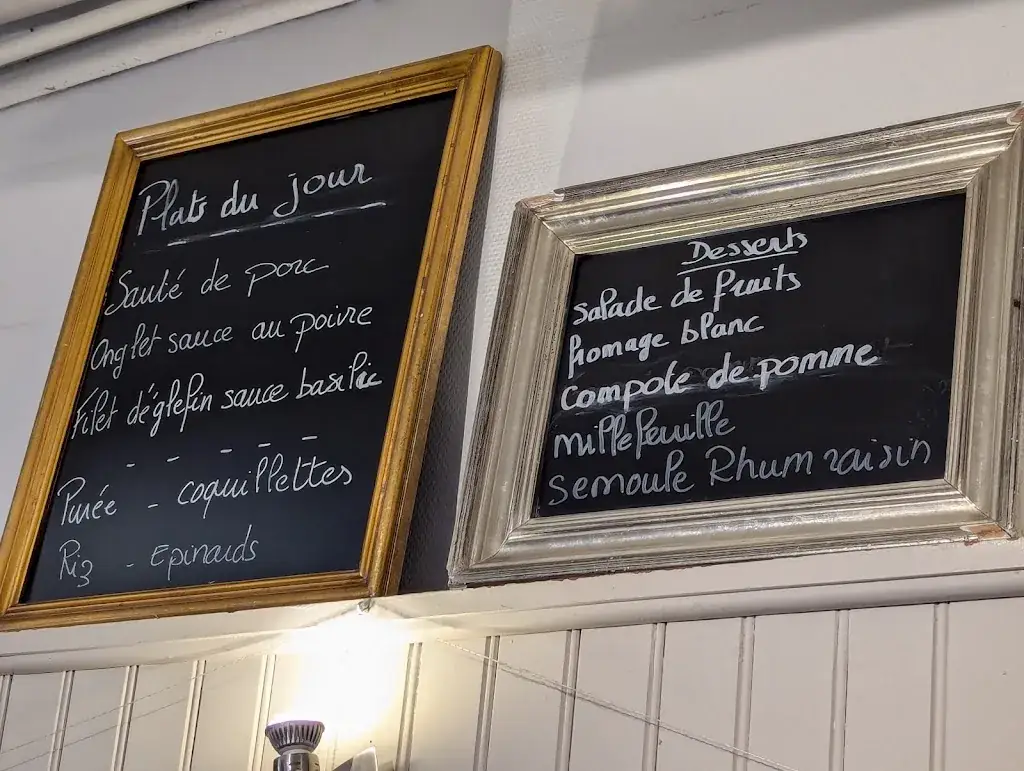 Plats du jour
Sauté de porc
Onglet sauce au poivre
Filet d'églefin sauce basilic
- - - -
Purée - coquillettes
Riz - Epinards
Desserts
Salade de fruits
fromage blanc
Compote de pomme
Millefeuille
Semoule Rhum raisin